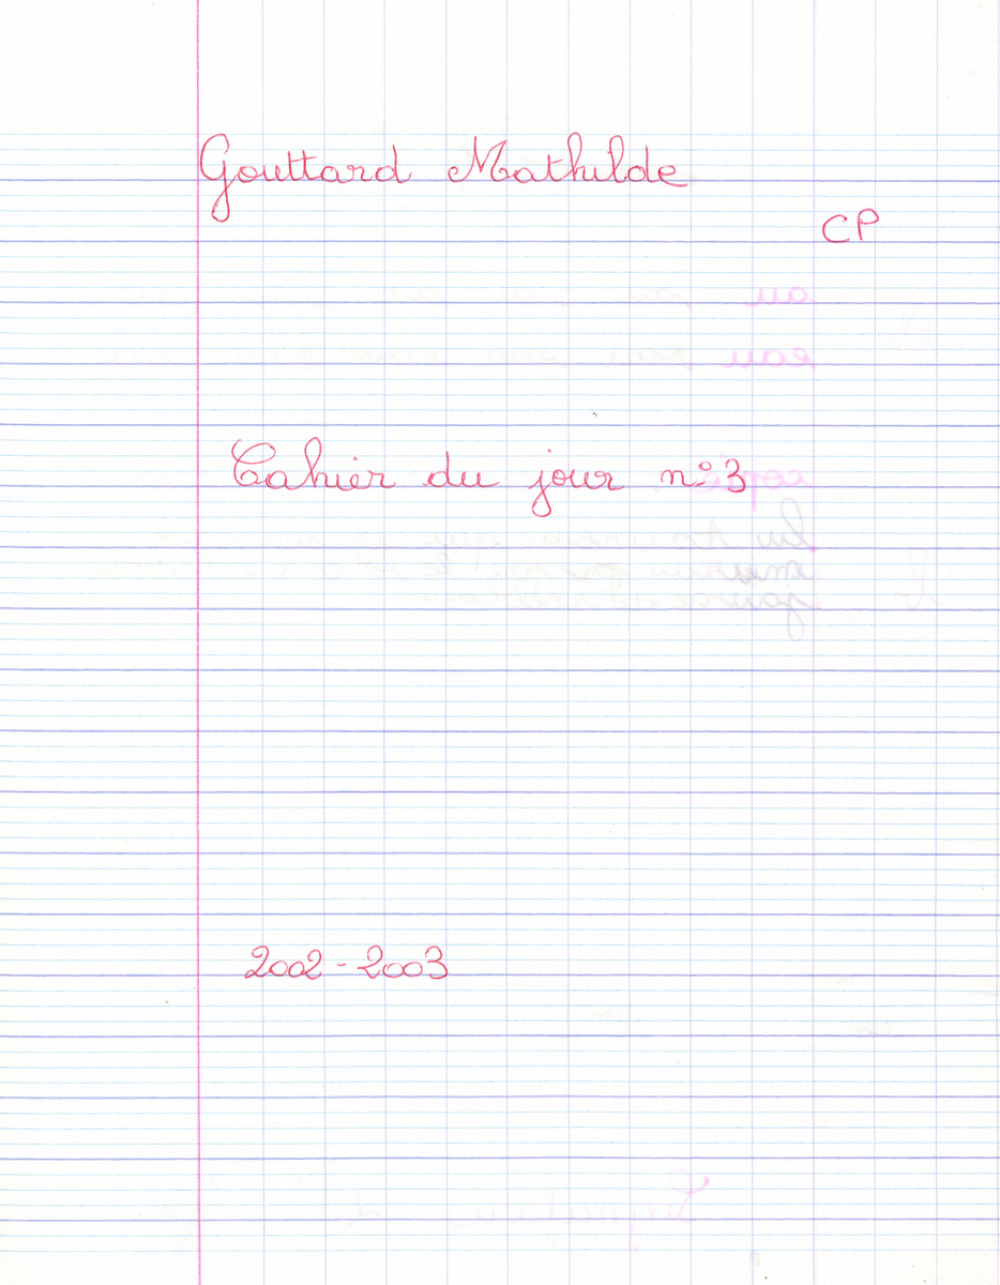 Gouttard Mathilde
CP
Cahier du jour n°3
2002-2003